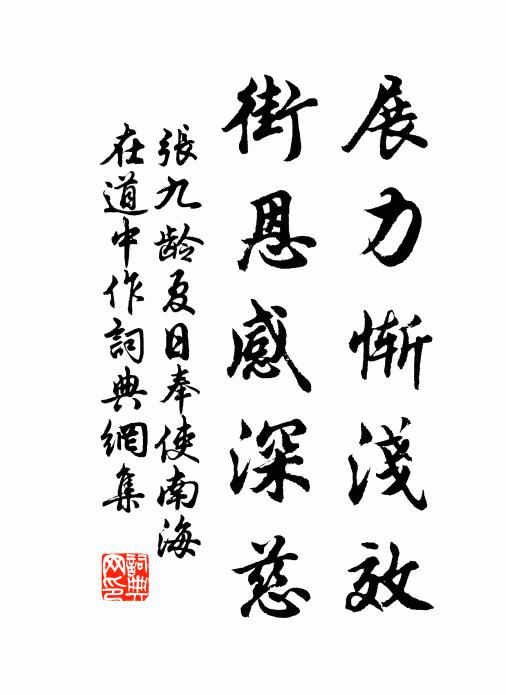 展力慚淺效
銜恩感深慈
張九龄夏日奉使南海
在道中作詞典網集
詞典
网印